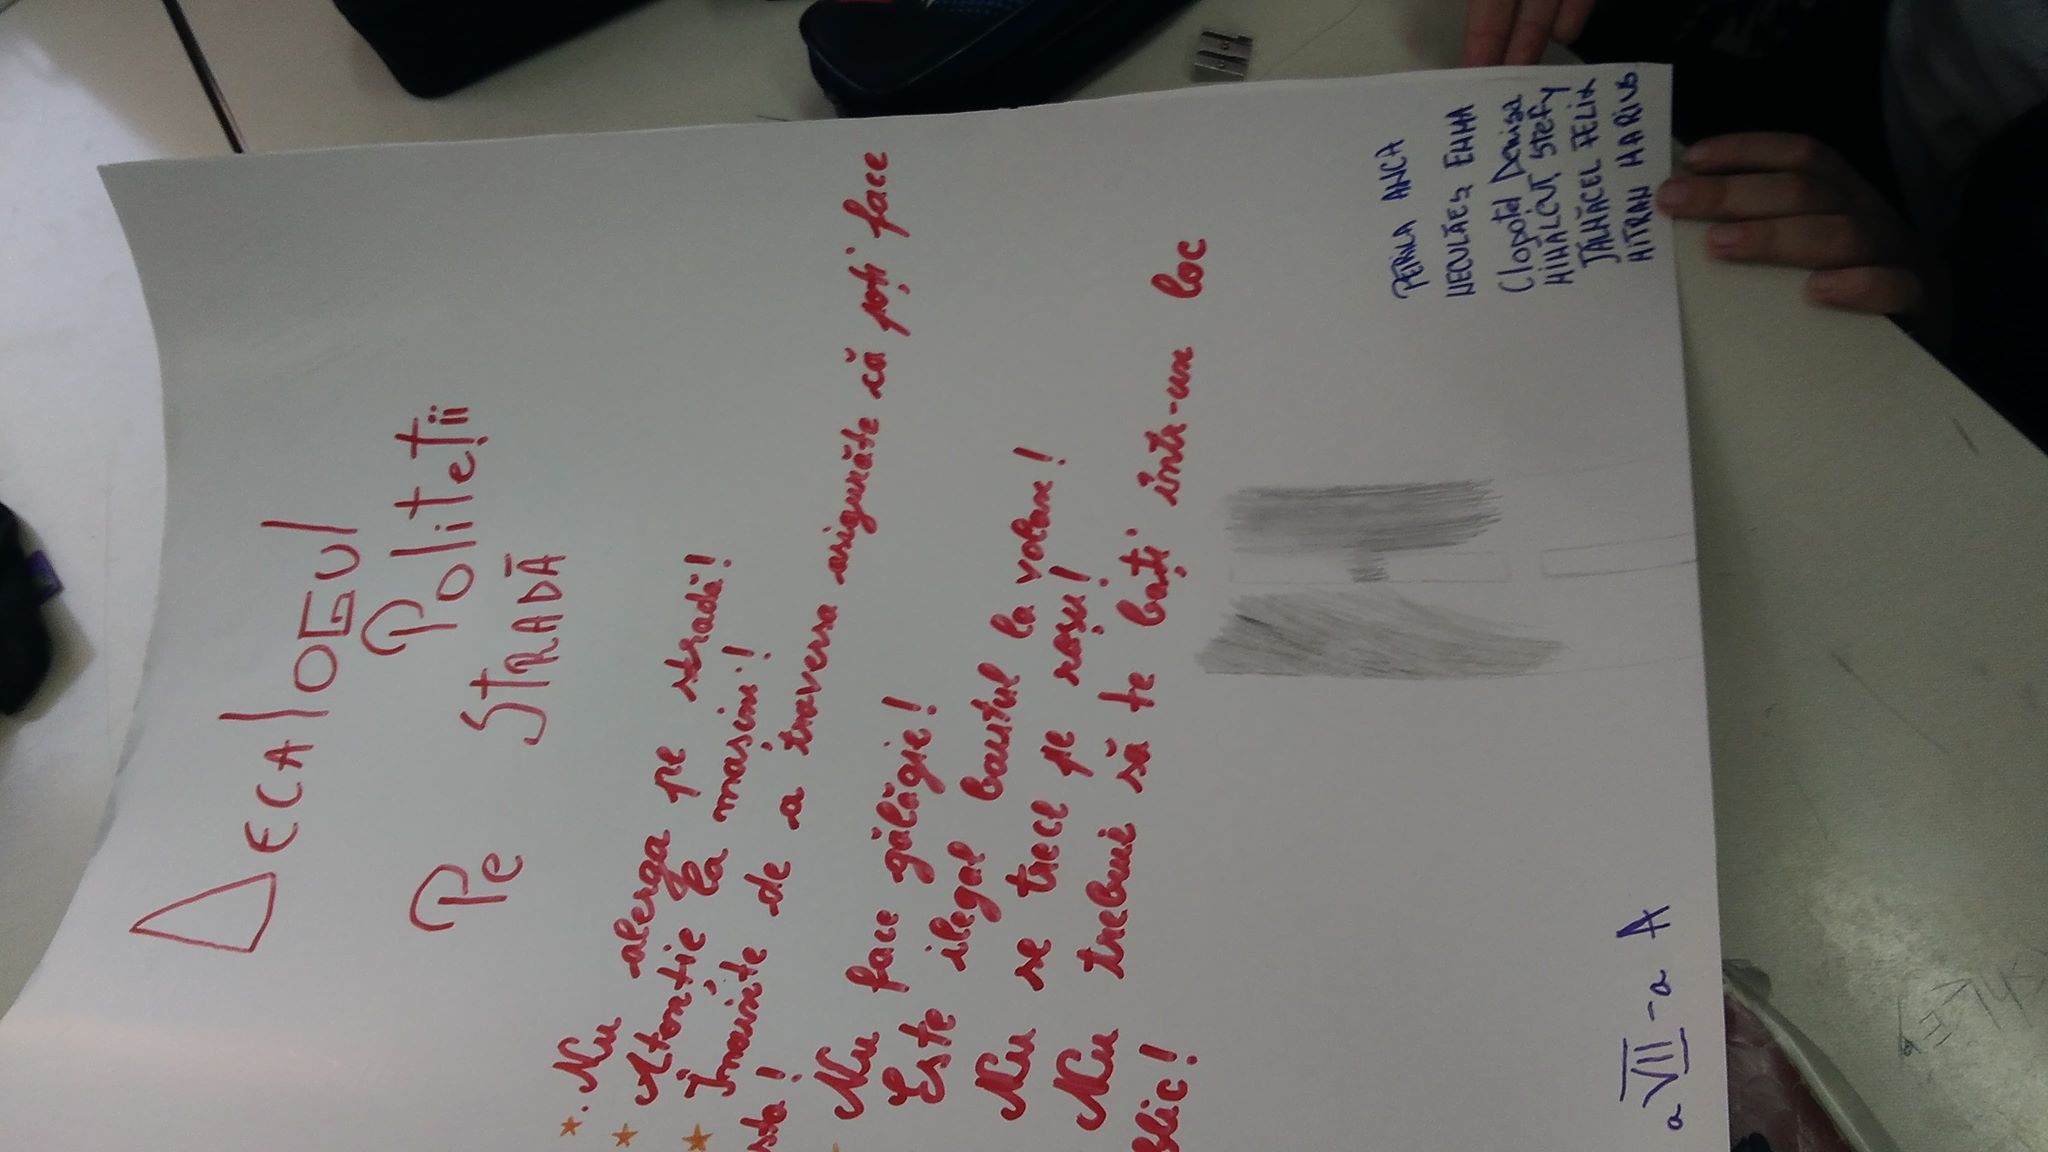 DECALOGUL
Politeții
Pe STRADĂ
Nu alerga pe stradă!
Atenție la mașini!
Înainte de a traversa asigurăte că poți face
sta!
Nu face gălăgie!
Este ilegal bautul la volan!
Nu se trece pe roșu!
Nu trebuie să te bați într-un loc
blic!
PERLA ANCA
NECULĂEȘ EMMA
Clopotel Denisa
MIHALCUȚ STEFY
TĂLMĂCEL FELIX
MITRAN MARIUS
a VII-a A